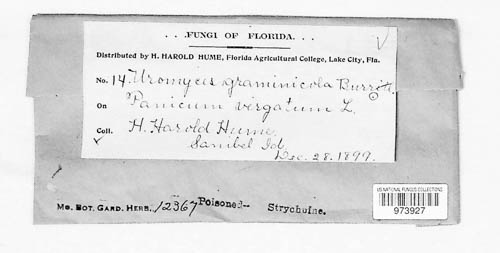 . . FUNGI OF FLORIDA. . .
Distributed by H. HAROLD HUME, Florida Agricultural College, Lake City, Fla.
No. 14 Uromyces graminicola Burrill.
On Panicum virgatum L.
Coll. H. Harold Hume.
Sanibel Id.
Dec. 28. 1899.
Mo. Bot. Gard. Herb. 12367 Poisoned-- Strychnine.
US NATIONAL FUNGUS COLLECTIONS
973927